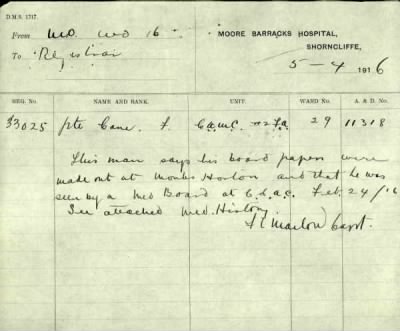 D.M.S. 1717.
From M.O. Wd 16
MOORE BARRACKS HOSPITAL,
SHORNCLIFFE,
To Registrar
5-4 1916
REG. No. NAME AND RANK. UNIT. WARD No. A. & D. No.
33025 Pte Cane. F. C.A.M.C. #2 F.A. 29 11318
This man says his board papers were
made out at Monks Horton and that he was
seen by a Med Board at C.C.A.C. Feb. 24/16
See attached Med. History
Marlow Capt.